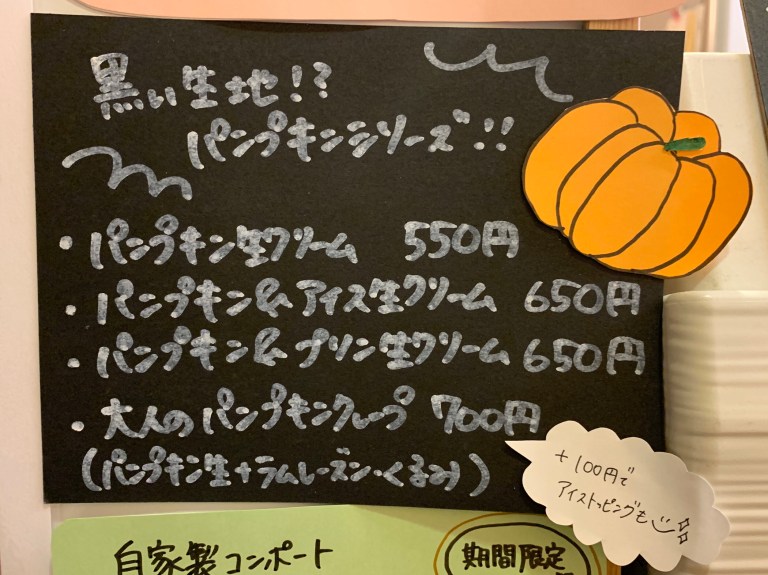 黒い生地!?
パンプキンシリーズ!!
・パンプキン生クリーム 550円
・パンプキン&アイス生クリーム 650円
・パンプキン&プリン生クリーム 650円
・大人のパンプキンクレープ 700円
(パンプキン生+ラムレーズン・くるみ)
+100円で
アイストッピングも
自家製コンポート
期間限定